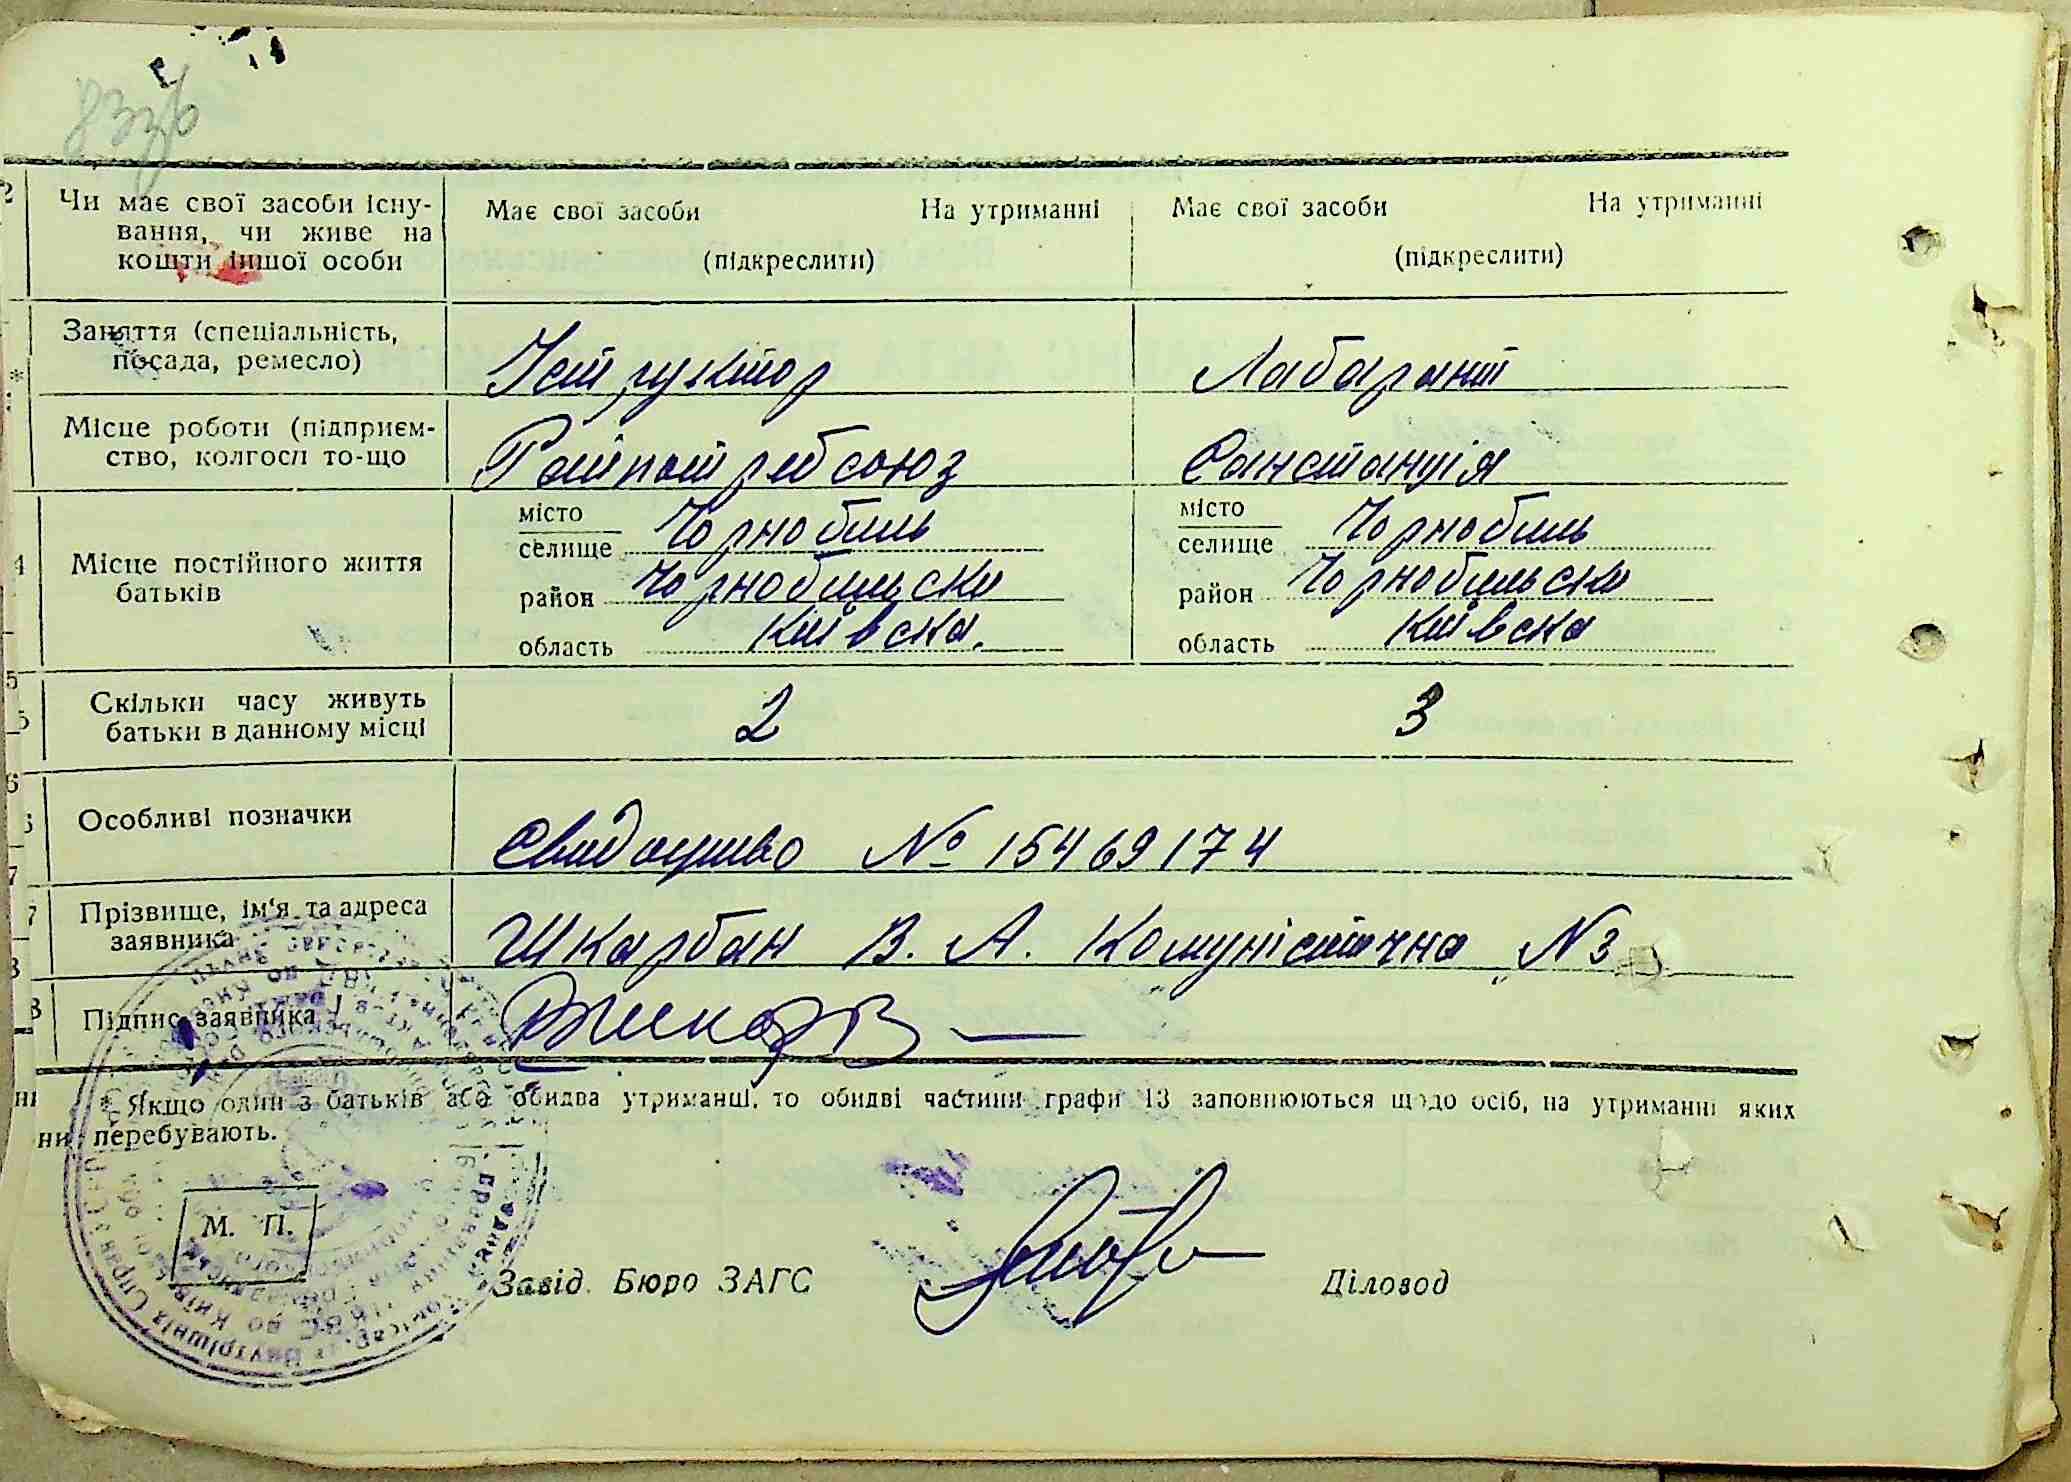 Чи має свої засоби існу-
вання, чи живе на
кошти іншої особи
Має свої засоби На утриманні
(підкреслити)
Має свої засоби На утриманні
(підкреслити)
Заняття (спеціальність,
посада, ремесло)
Істгруктор
Лабарант
Місце роботи (підприєм-
ство, колгосп то-що
Райпотребсоюз
Санстанція
4
Місце постійного життя
батьків
місто
селище Чорнобиль
район Чорнобильски
область Київска.
місто
селище Чорнобиль
район Чорнобильски
область Київска
5
Скільки часу живуть
батьки в данному місці
2
3
6
Особливі позначки
Свидоцтво № 15469174
7
Прізвище, ім'я та адреса
заявника
Шкарбан В. А. Комуністична N3
8
Підпис заявника
* Якщо один з батьків або обидва утриманці, то обидві частини графи 13 заповнюються щодо осіб, на утриманні яких
перебувають.
М. П.
Завід. Бюро ЗАГС
Діловод